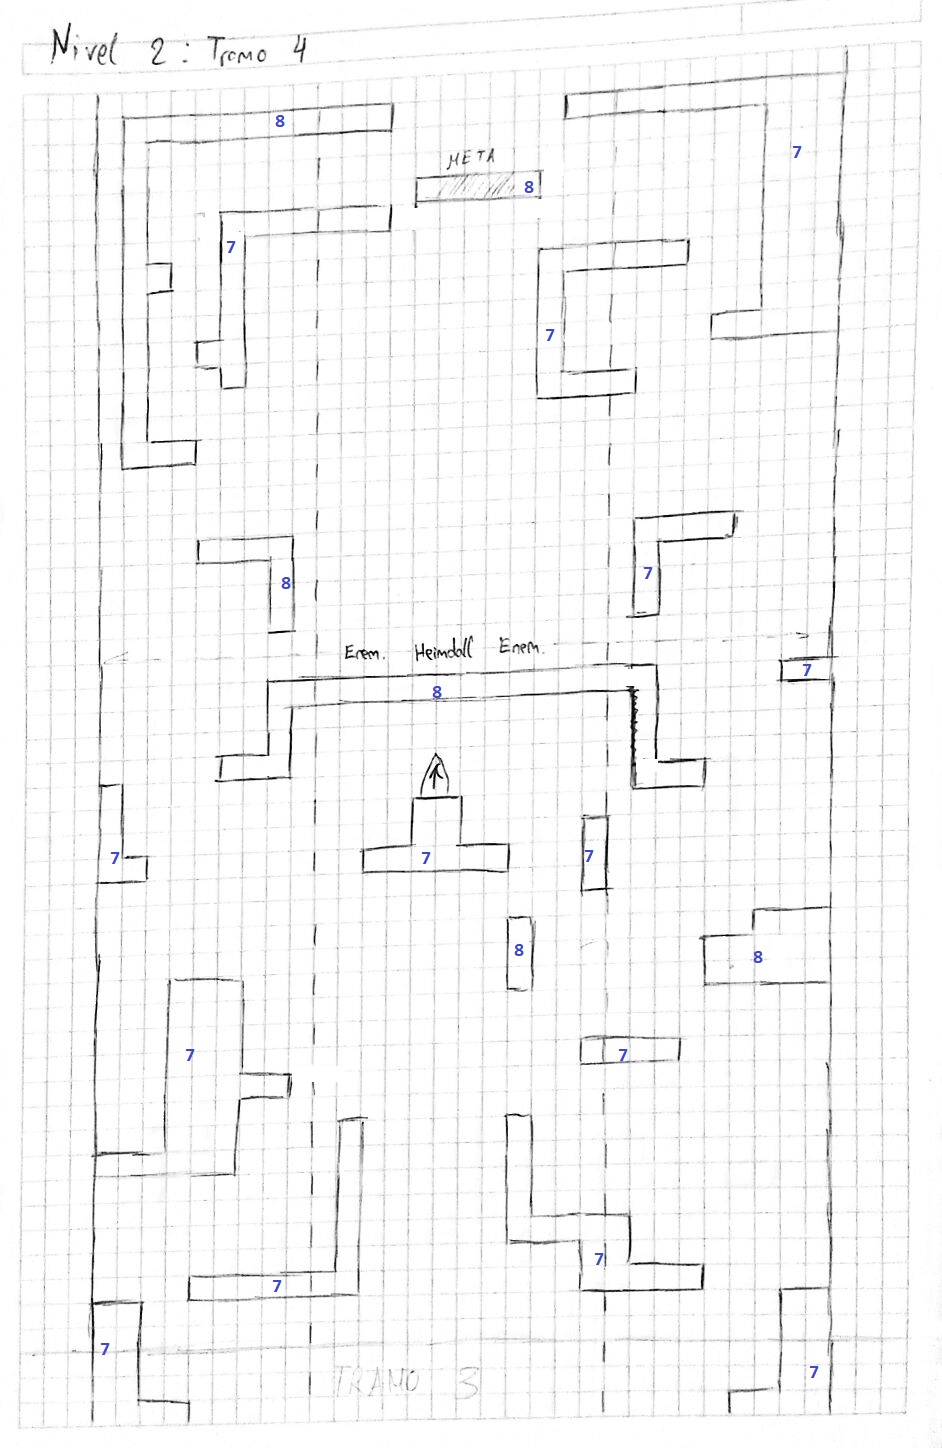 Nivel 2: Tramo 4
8
7
META
8
7
7
8
7
Enem. Heimdall Enem.
7
8
7
7
7
8
8
7
7
7
7
7
7
TRAMO 3